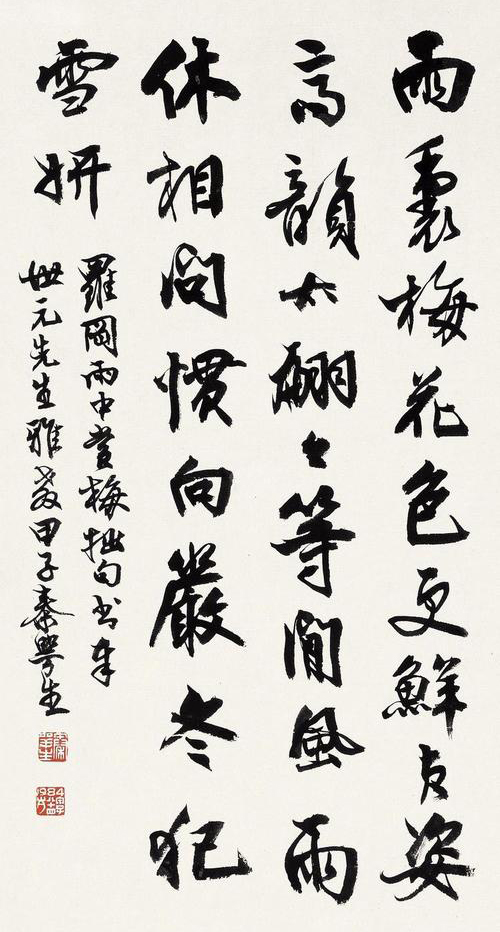 雨裏梅花色更鮮貞姿
高韻太翩〻等閒風雨
休相問慣向嚴冬犯
雪妍
羅岡雨中賞梅拙句书奉
世元先生雅教甲子秦咢生